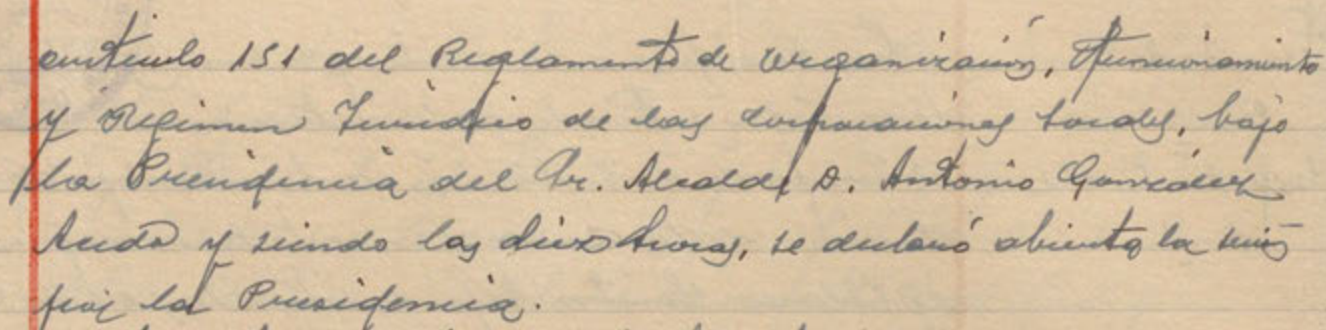 artículo 151 del Reglamento de organización, funcionamiento
y Régimen Jurídico de las corporaciones locales, bajo
la Presidencia del Sr. Alcalde D. Antonio González
y siendo las diez horas, se declaró abierta la sesión
por la Presidencia.